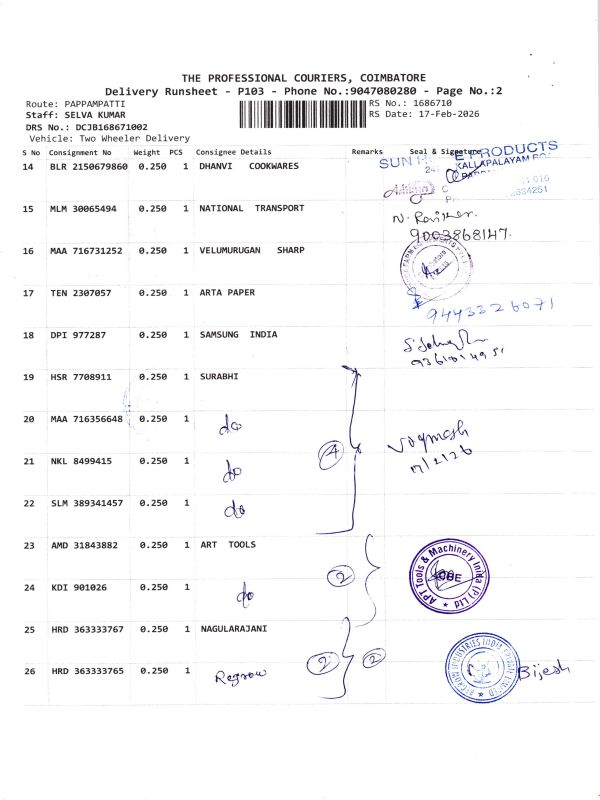 THE PROFESSIONAL COURIERS, COIMBATORE
Delivery Runsheet - P103 - Phone No.:9047080280 - Page No.:2
Route: PAPPAMPATTI
RS No.: 1686710
Staff: SELVA KUMAR
RS Date: 17-Feb-2026
DRS No.: DCJB168671002
Vehicle: Two Wheeler Delivery
S No Consignment No Weight PCS Consignee Details Remarks Seal & Signature
14 BLR 2150679860 0.250 1 DHANVI COOKWARES
SUN E PRODUCTS
KALLAPALAYAM
15 MLM 30065494 0.250 1 NATIONAL TRANSPORT
9003868147.
16 MAA 716731252 0.250 1 VELUMURUGAN SHARP
17 TEN 2307057 0.250 1 ARTA PAPER
9443326071
18 DPI 977287 0.250 1 SAMSUNG INDIA
19 HSR 7708911 0.250 1 SURABHI
20 MAA 716356648 0.250 1 do
4
17/2/26
21 NKL 8499415 0.250 1 do
22 SLM 389341457 0.250 1 do
23 AMD 31843882 0.250 1 ART TOOLS
2
APT Tools & Machinery India (P) Ltd
CBE
24 KDI 901026 0.250 1 do
25 HRD 363333767 0.250 1 NAGULARAJANI
2 2
26 HRD 363333765 0.250 1 Regrow
INDUSTRIES INDIA PRIVATE LIMITED
Bijesh